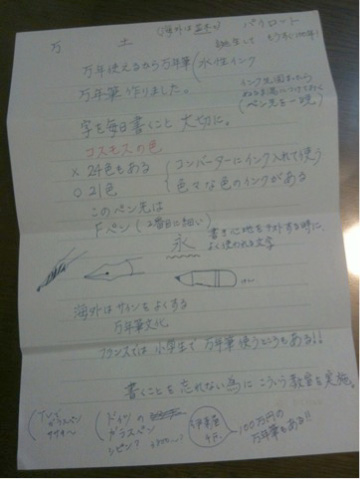 (海外は
パイロット
万 土
誕生して もうすぐ100年!
万年使えるから万年筆 (水性インク
万年筆作りました。
インク先固まったら
ぬるま湯につけておく
(ペン先を一晩)
字を毎日書くこと 大切に。
コスモスの色
× 24色もある
○ 21色
コンバーターにインク入れて使う
色々な色のインクがある
このペン先は
Fペン (2番目に細い)
永
書き心地をテストする時に
よく使われる文字
海外はサインをよくする
万年筆文化
フランスでは 小学生で 万年筆使うところもある!!
書くことを忘れない為に こういう教室を実施。
ガラスペン
ドイツの
ガラスペン
100万円の
万年筆もある!!